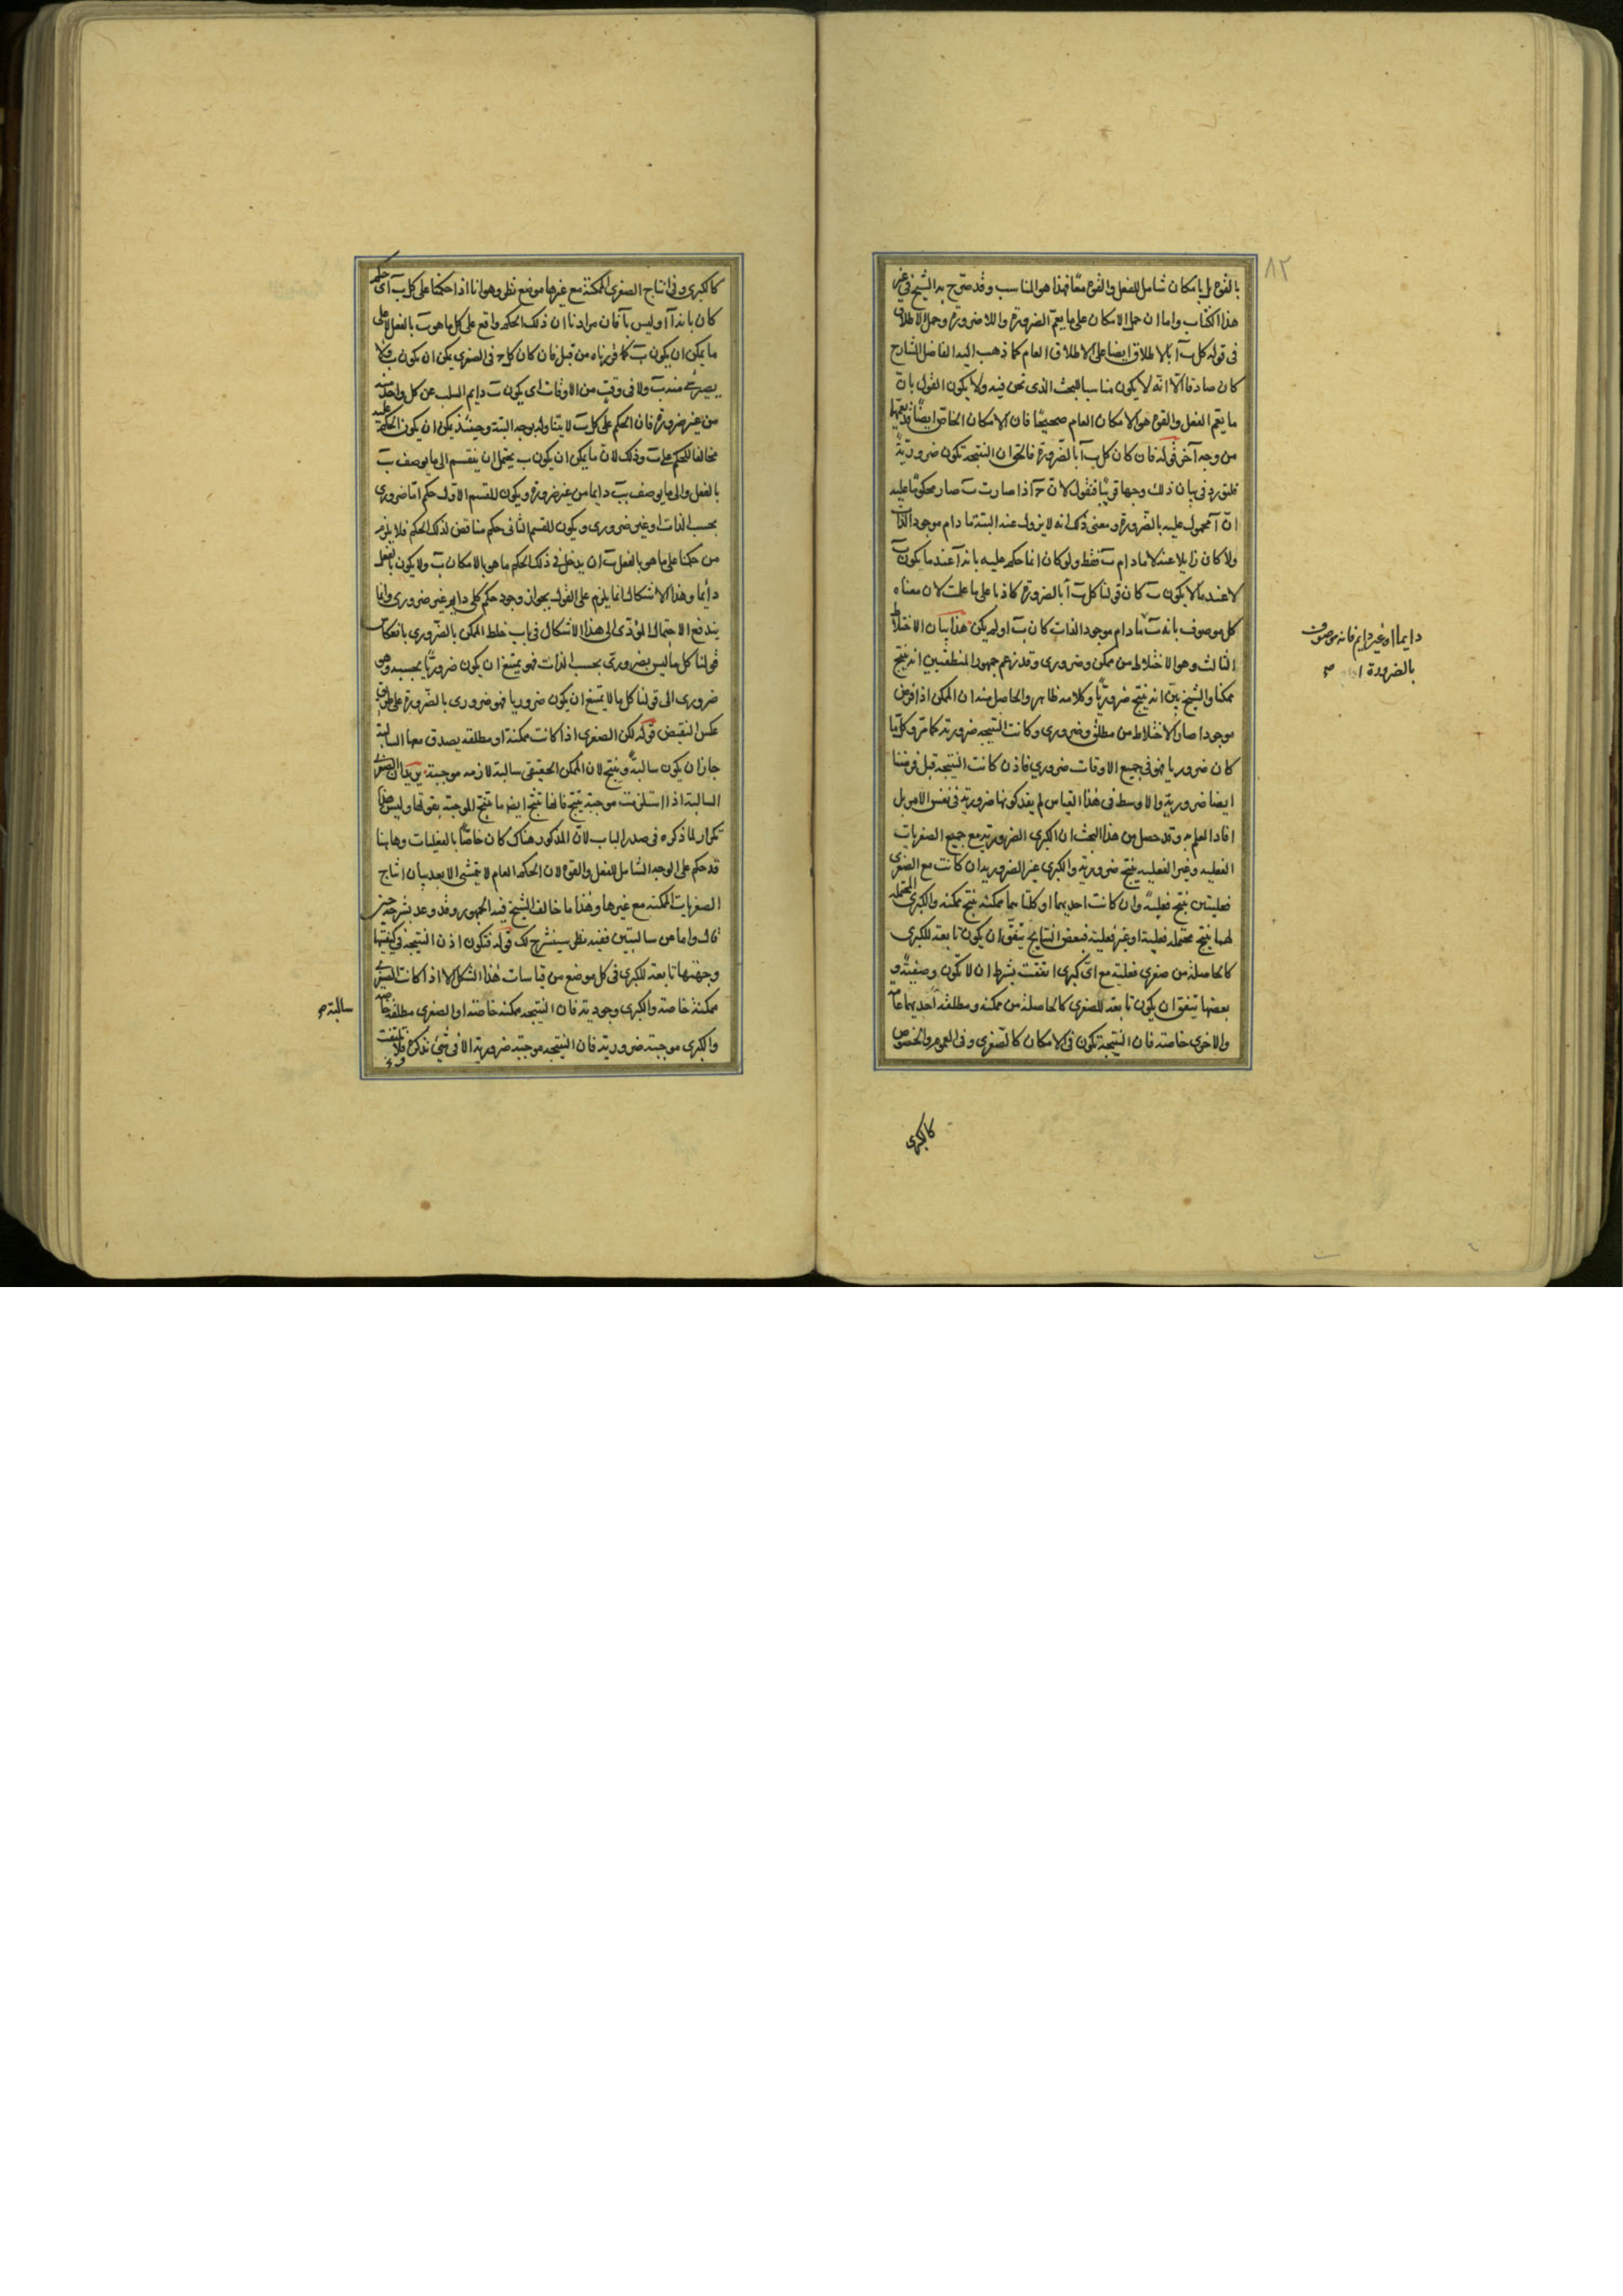 ٨٢
بالقوة بل بامكان شامل للفعل والقوة معًا فهذا هو المناسب وقد صرّح به الشيخ في غير
هذا الكتاب واما ان حمل الامكان على ما يعمّ الضرورة واللاضرورة وحمل الاطلاق
في قوله كل ب آ بالاطلاق ايضا على الاطلاق العام كما ذهب اليه الفاضل الشارح
كان صادقا الّا انّه لا يكون مناسبا للبحث الذى نحن فيه ولا يكون القول بانّ
ما يعم الفعل والقوة هو الامكان العام صحيحًا فان الامكان الخاص ايضًا قد يعمّها
من وجه آخر قوله فان كان كل ب آ بالضّرورة فالحق ان النتيجة تكون ضروريّةً
فلنورد في بيان ذلك وجها قريبًا فنقول لانّ ج اذا صارت ب صار محكومًا عليه
انّ آ محمول عليه بالضّرورة ومعنى ذلك انه لا يزول عنه البتة ما دام موجود الذات
ولا كان زايلا عنه لا ما دام ب فقط ولو كان انما حكم عليه بانه آ عند ما يكون ب
لا عند ما لا يكون ب كان قولنا كل ب آ بالضرورة كاذبا على ما علمت لان معناه
كل موصوف بانه ب ما دام موجود الذات كان ب او لم يكن هذا بيان الاختلاط
الثالث وهو الاختلاط من ممكن وضرورى وقد زعم جمهور المنطقيين انه ينتج
ممكنا والشيخ بيّن انه ينتج ضروريّا وكلامه ظاهر والحاصل منه ان الممكن اذا فرض
موجودا صار الاختلاط من مطلق وضرورى وكانت النتيجه ضرورية كما مرّ وكلّما
كان ضروريا فهو في جميع الاوقات ضرورى فاذن كانت النتيجة قبل فرضنا
ايضا ضروريّة والاوسط فى هذا القياس لم يفد كونها ضرورية فى نفس الامر بل
افاد العلم به وقد حصل من هذا البحث ان الكبرى الضرورية مع جميع الصغريات
الفعليه وغير الفعليه ينتج ضروريّة والكبرى غير الضرورية ان كانت مع الصغرى
فعليتين ينتج فعليةً وان كانت احديهما او كلتاهما ممكنة ينتج ممكنة والكبرى المحتملة
لهما ينتج محتملة فعلية او غير فعلية فبعض النتايج يتفق ان يكون تابعة للكبرى
كالحاصلة من صغرى فعلية مع اىّ كبرى اتفقت بشرط ان لا تكون وصفيّةً و
بعضها يتفق ان يكون تابعة للصغرى كالحاصلة من ممكنة ومطلقة احديهما عامّة
والاخرى خاصة فان النتيجة تكون فى الامكان كالصّغرى وفى العموم والخصوص
دايما او غير دايم فانه موصوف
بالضرورة
كالكبرى
كالكبرى وفى انتاج الصغرى الممكنة مع غيرها موضع نظر وهو انا اذا حكمنا على كل ب آ اى حكم
كان بانه آ او ليس بآ فان مرادنا ان ذلك الحكم واقع على كل ما هو ب بالفعل لا على
ما يمكن ان يكون ب كما قررناه من قبل فان كان كل ج فى الصغرى يمكن ان يكون ب
منه ب ولا فى وقت من الاوقات اى يكون ب دايم السلب عن كل واحد منه
من غير ضرورة فان الحكم على كل ب لا يتناوله بوجه البتة وحينئذ يمكن ان يكون الحكم عليه
مخالفا للحكم على ب وذلك لان ما يمكن ان يكون ب يحتمل ان ينقسم الى ما يوصف ب
بالفعل والى ما يوصف ب دايما من غير ضرورة ويكون للقسم الاول حكم امّا ضرورى
بحسب الذات او غير ضرورى ويكون للقسم الثانى حكم مناقض لذلك الحكم فلا يلزم
من حكمنا على ما هو بالفعل ب ان يدخل فى ذلك الحكم ما هو بالامكان ب ولا يكون بالفعل
دايما وهذا الاشكال انما يلزم على القول بجواز وجود حكم كلى دايم غير ضرورى وانما
يندفع الاحتمال المؤدّى الى هذا الاشكال فى باب خلط الممكن بالضّرورى بانعكاس
قولنا كل ما ليس بضرورى بحسب الذات فهو يمتنع ان يكون ضروريّا بحسبه وهو
ضرورى الى قولنا كل ما لا يمتنع ان يكون ضروريا فهو ضرورى بالضّرورة على طريق
عكس النقيض قوله لكن الصغرى اذا كانت ممكنة او مطلقه يصدق معها السالبة
جاز ان يكون سالبة وينتج لان الممكن الحقيقى سالبة لازمه موجبة يريد ان الصغرى
السالبة اذا استلزمت موجبة ينتج فانها تنتج ايضا ما تنتج الموجبة بقوتها وليس هذا
تكرار لما ذكره فى صدر الباب لانّ المذكور هناك كان خاصًّا بالفعليات وهاهنا
قد حكم على الوجه الشامل للفعل والقوة لان الحكم العام لا يتمشى الا بعد بيان انتاج
الصغريات الممكنه مع غيرها وهذا ما خالف الشيخ فيه الجمهور وقد وعد بشرحه حين
قال واما من سالبتين ففيه نظر سيشرح لك قوله فتكون اذن النتيجة فى كيفيتها
وجهتها تابعة للكبرى فى كل موضع من قياسات هذا الشكل الا اذا كانت الصغرى
ممكنة خاصة والكبرى وجودية فان النتيجه ممكنة خاصّة او الصغرى مطلقة خاصه
والكبرى موجبة ضرورية فان النتيجه موجبة ضرورية الا فى شئ نذكره فلا تلتفت
سالبة